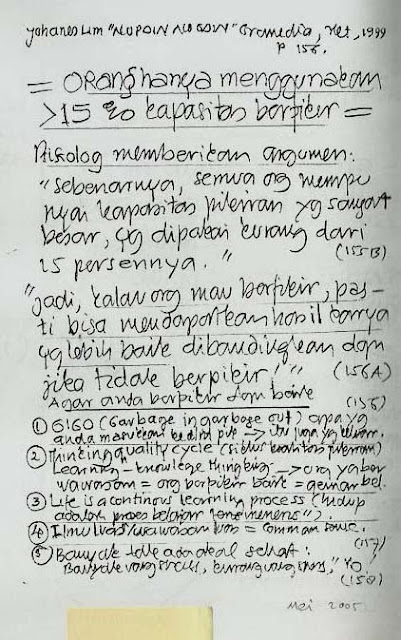 Yohanes Lim "NO PAIN NO GAIN" Gramedia, 1999
p 156.
= ORang hanya menggunakan
>15 % kapasitas berfikir =
Psikolog memberikan argumen:
"Sebenarnya, semua org mempu
nyai kapasitas pikiran yg sangat
besar, yg dipakai kurang dari
15 persennya." (155B)
"Jadi, kalau org mau berfikir, pas-
ti bisa mendapatkan hasil karya
yg lebih baik dibandingkan dgn
jika tidak berpikir!" (156A)
Agar anda berpikir dgn baik (156)
① GIGO (Garbage in garbage out) apa yg
anda masukkan ke dlm → itu juga yg keluar.
② Thinking quality cycle (siklus kualitas pikiran)
Learning - knowledge thinking → org yg ber
wawasan = org berpikir baik = gemar bel.
③ Life is a continous learning process (hidup
adalah proses belajar).
④ Ilmu luas/wawasan luas = common sense. (157)
⑤ Banyak tdk ada akal sehat:
Banyak, kurang, (158)
Mei 2005